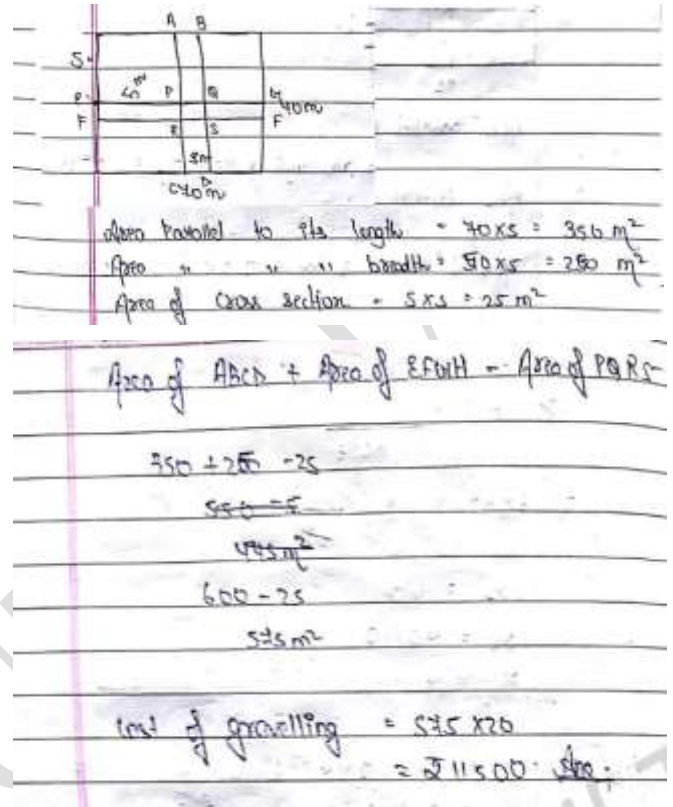 A B
S
5m P Q G
F 40m
F
R S
5m
C D
70m
Area Parallel to its length = 70x5 = 350 m²
Area " " " breadth = 50x5 = 250 m²
Area of Cross section = 5x5 = 25 m²
Area of ABCD + Area of EFGH - Area of PQRS
350 + 250 - 25
550 - 5
475 m²
600 - 25
575 m²
Cost of gravelling = 575 x20
= ₹ 11500 Ans.